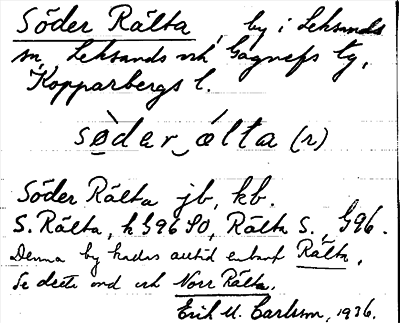 Söder Rälta, by i Leksands
sn, Leksands och Gagnefs tg,
Kopparbergs l.
sø̀der_álta (r)
Söder Rälta jb, kb.
S. Rälta, h G96 SO, Rälta S., G96.
Denna by kallas alltid enbart Rälta.
Se detta ord och Norr Rälta.
Erik M. Carlsson, 1936.